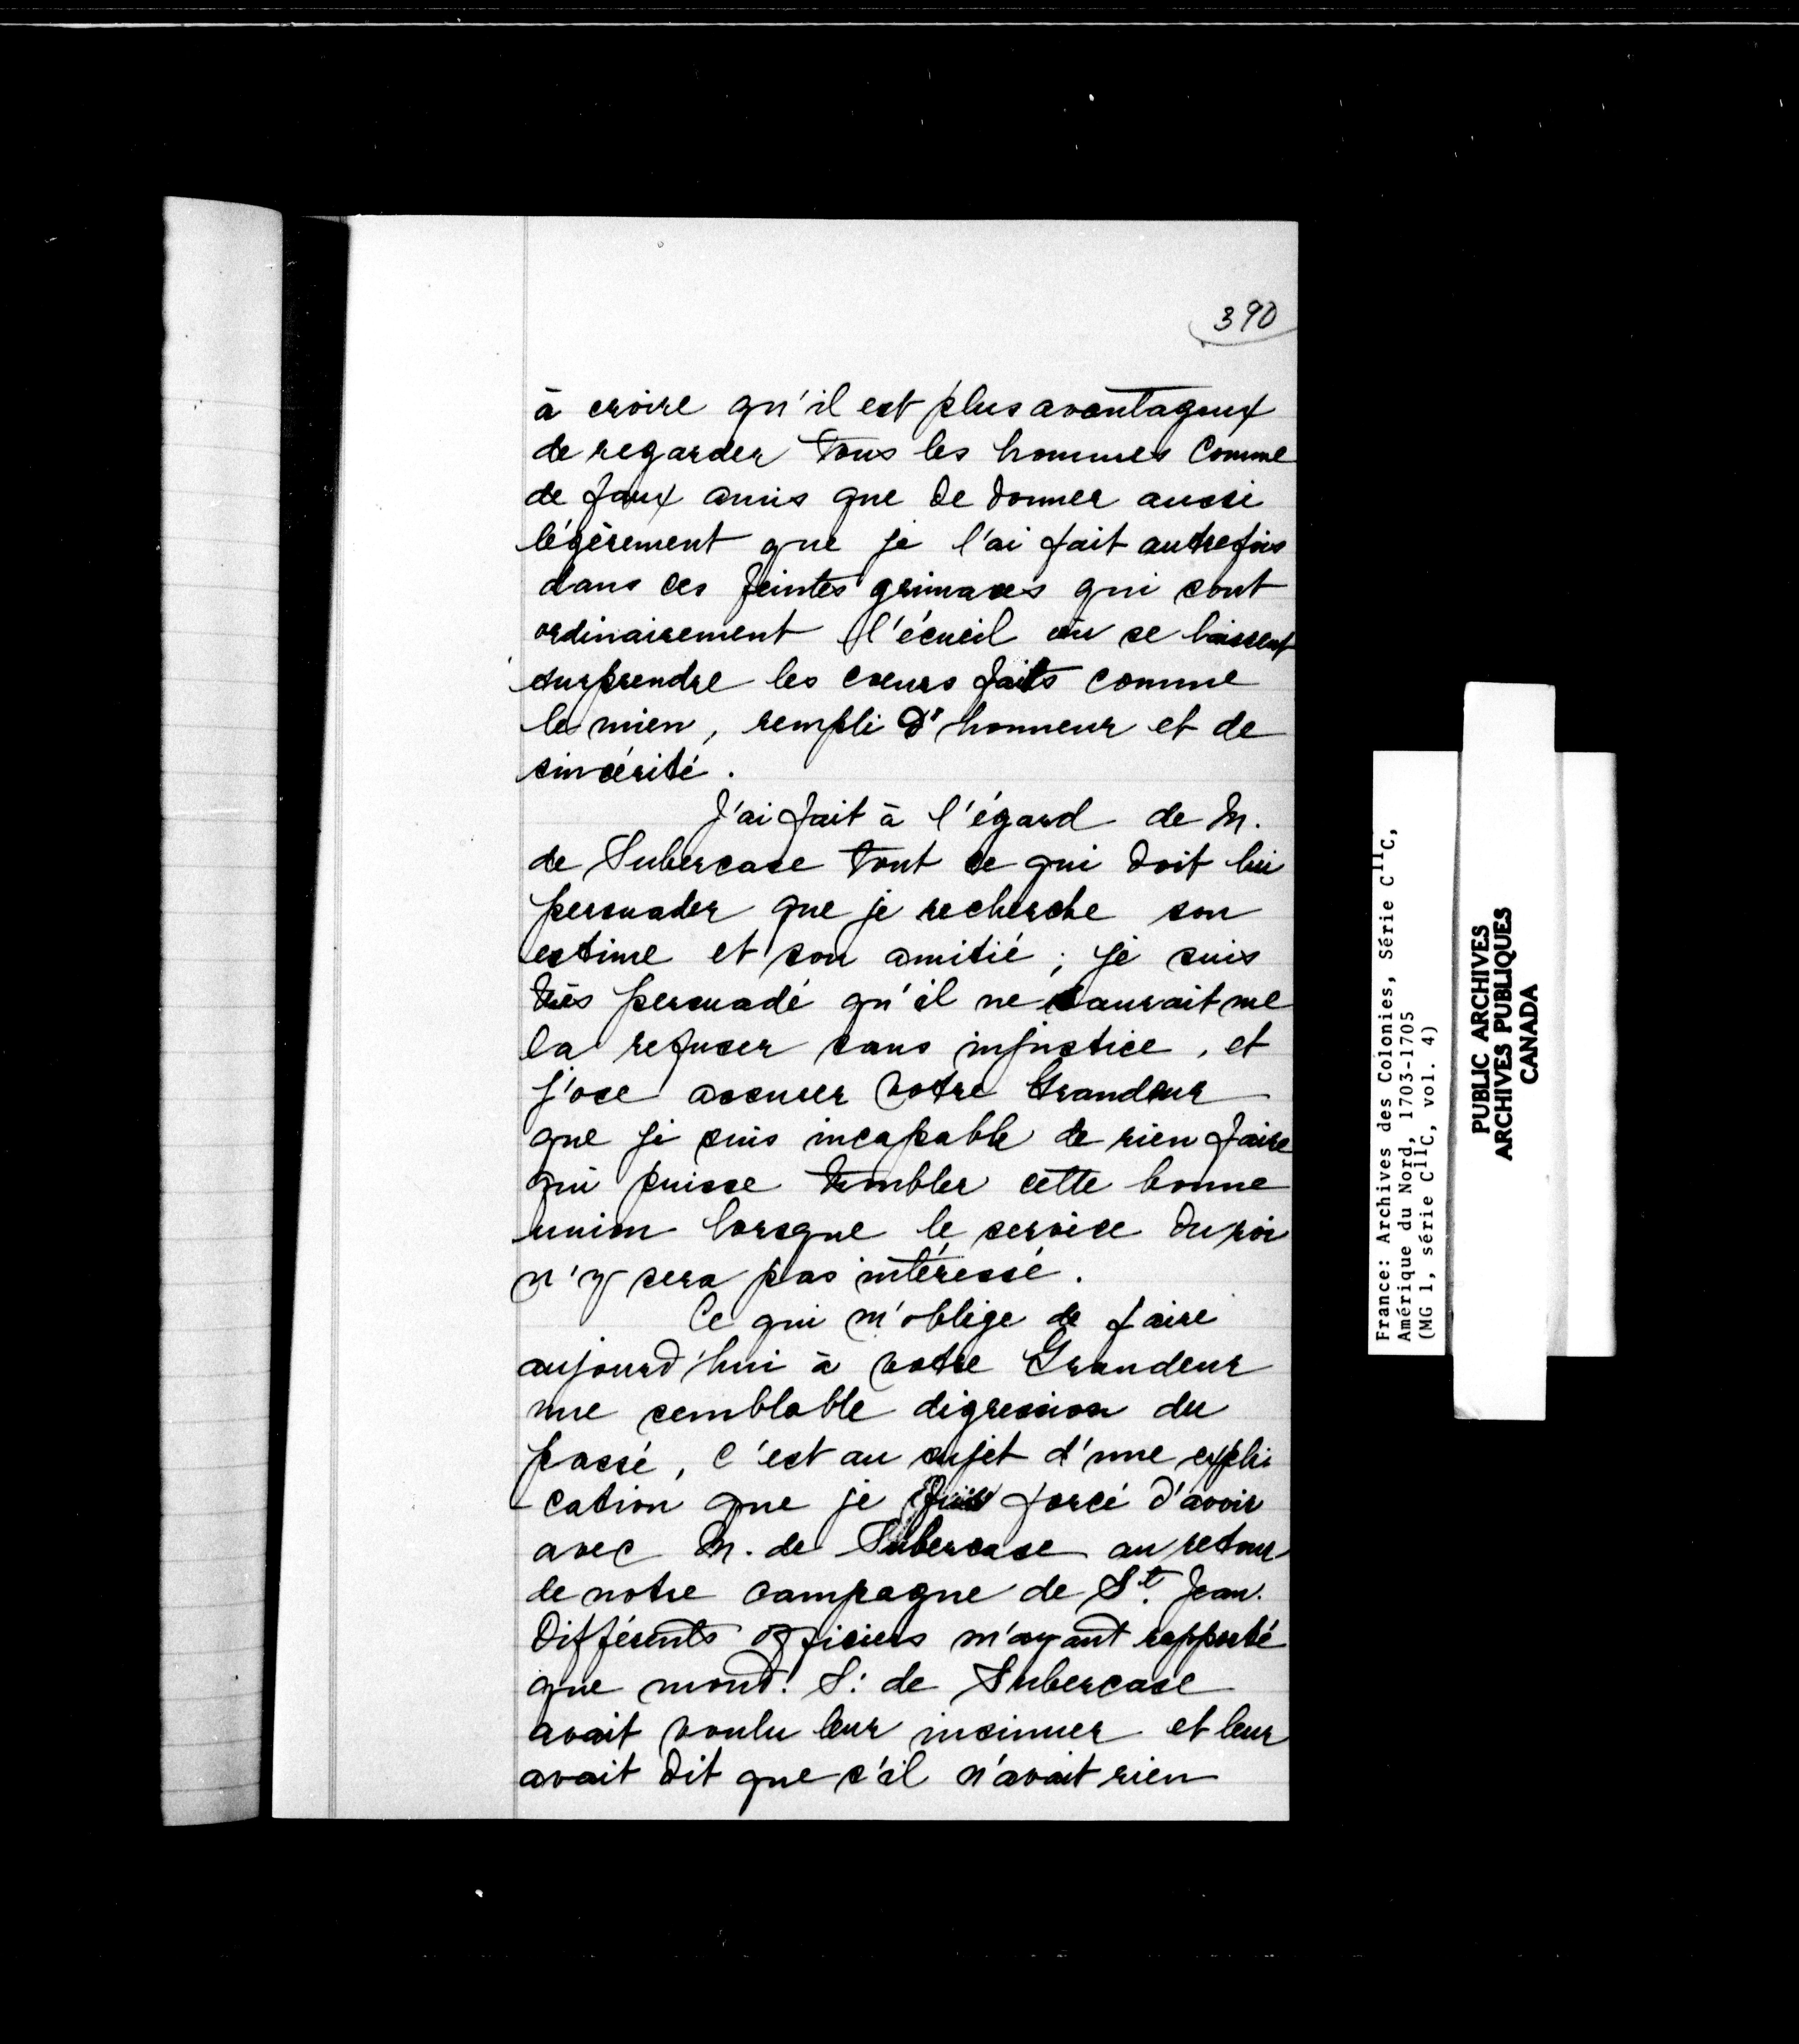 390
à croire qu'il est plus avantageux
de regarder tous les hommes comme
de faux amis que de donner aussi
légèrement que je l'ai fait autrefois
dans ces feintes grimaces qui sont
ordinairement l'écueil où se laissent
surprendre les cœurs faits comme
le mien, rempli d'honneur et de
sincérité.
J'ai fait à l'égard de M.
de Subercase tout ce qui doit lui
persuader que je recherche son
estime et son amitié ; je suis
très persuadé qu'il ne saurait me
la refuser sans injustice, et
j'ose assurer votre Grandeur
que je suis incapable de rien faire
qui puisse troubler cette bonne
union lorsque le service du roi
n'y sera pas intéressé.
Ce qui m'oblige de faire
aujourd'hui à votre Grandeur
une semblable digression du
passé, c'est au sujet d'une expli
-cation que je fus forcé d'avoir
avec M. de Subercase au retour
de notre campagne de St. Jean.
Différents officiers m'ayant rapporté
que mond. S. de Subercase
avait voulu leur insinuer et leur
avait dit que s'il n'avait rien
France: Archives des Colonies, série C11C,
Amérique du Nord, 1703-1705
(MG 1, série C11C, vol. 4)
PUBLIC ARCHIVES
ARCHIVES PUBLIQUES
CANADA